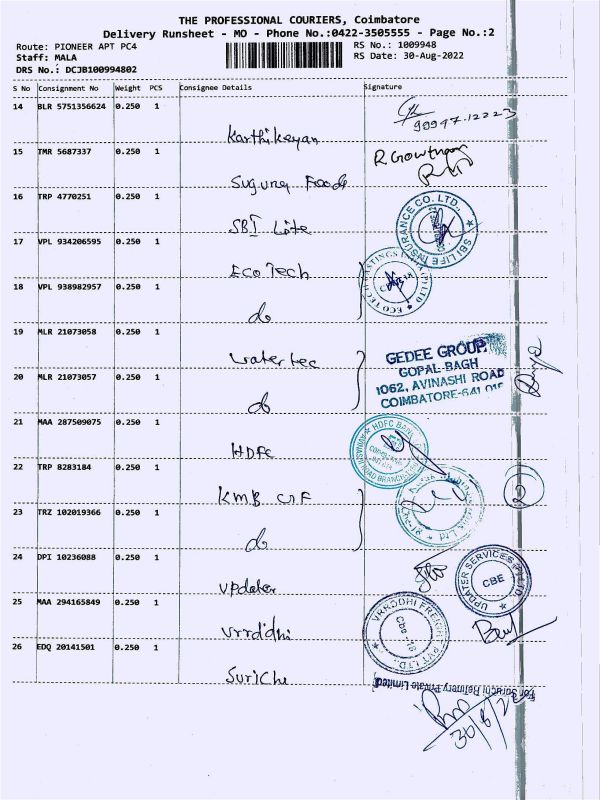 THE PROFESSIONAL COURIERS, Coimbatore
Delivery Runsheet - MO - Phone No.:0422-3505555 - Page No.:2
Route: PIONEER APT PC4
Staff: MALA
DRS No.: DCJB100994802
RS No.: 1009948
RS Date: 30-Aug-2022
S No Consignment No Weight PCS Consignee Details Signature
14 BLR 5751356624 0.250 1
Karthikeyan
90947-12223
15 TMR 5687337 0.250 1
Suguna Foods
R. Gowtham
16 TRP 4770251 0.250 1
SBI Life
SBI LIFE INSURANCE CO. LTD.,
17 VPL 934206595 0.250 1
Eco Tech
18 VPL 938982957 0.250 1
do
19 MLR 21073058 0.250 1
Watertec
GEDEE GROUP
GOPAL BAGH
1062, AVINASHI ROAD
COIMBATORE-641
20 MLR 21073057 0.250 1
do
21 MAA 287509075 0.250 1
HDFC
HDFC Bank
22 TRP 8283184 0.250 1
KMB CRF
23 TRZ 102019366 0.250 1
do
24 DPI 10236088 0.250 1
Updater
UPDATER SERVICES (P) LTD.
CBE
25 MAA 294165849 0.250 1
Vrrddhi
VRRDDHI FREIGHT PVT LTD.,
Cbe-18
26 EDQ 20141501 0.250 1
Suriche
For Suruchi Refinery Private Limited
30/8/22